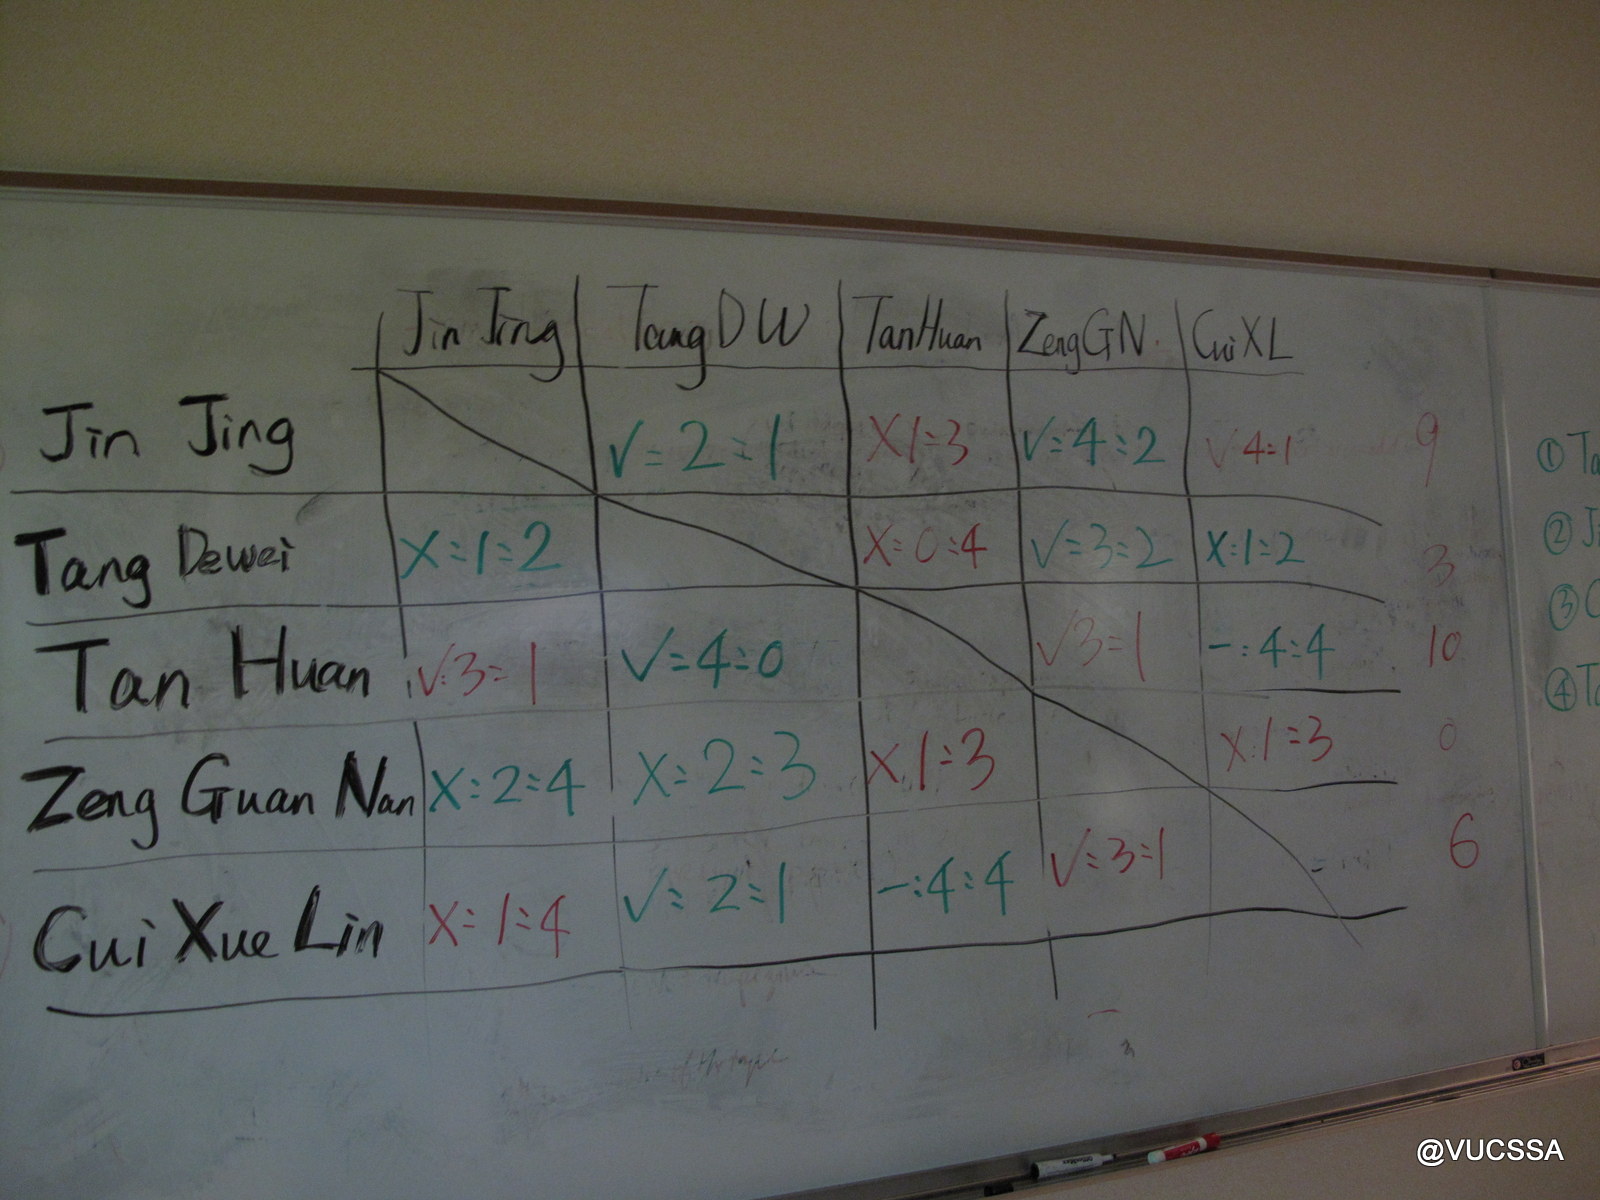 Jin Jing Tang DW Tan Huan Zeng GN Cui XL
Jin Jing √:2:1 X1:3 √:4:2 √4:1 9
Tang Dewei X:1:2 X:0:4 √:3:2 X:1:2 3
Tan Huan √:3:1 √:4:0 √3:1 -:4:4 10
Zeng Guan Nan X:2:4 X:2:3 X,1:3 X:1:3 0
Cui Xue Lin X:1:4 √:2:1 -:4:4 √:3:1 6
①
②
③
④
@VUCSSA